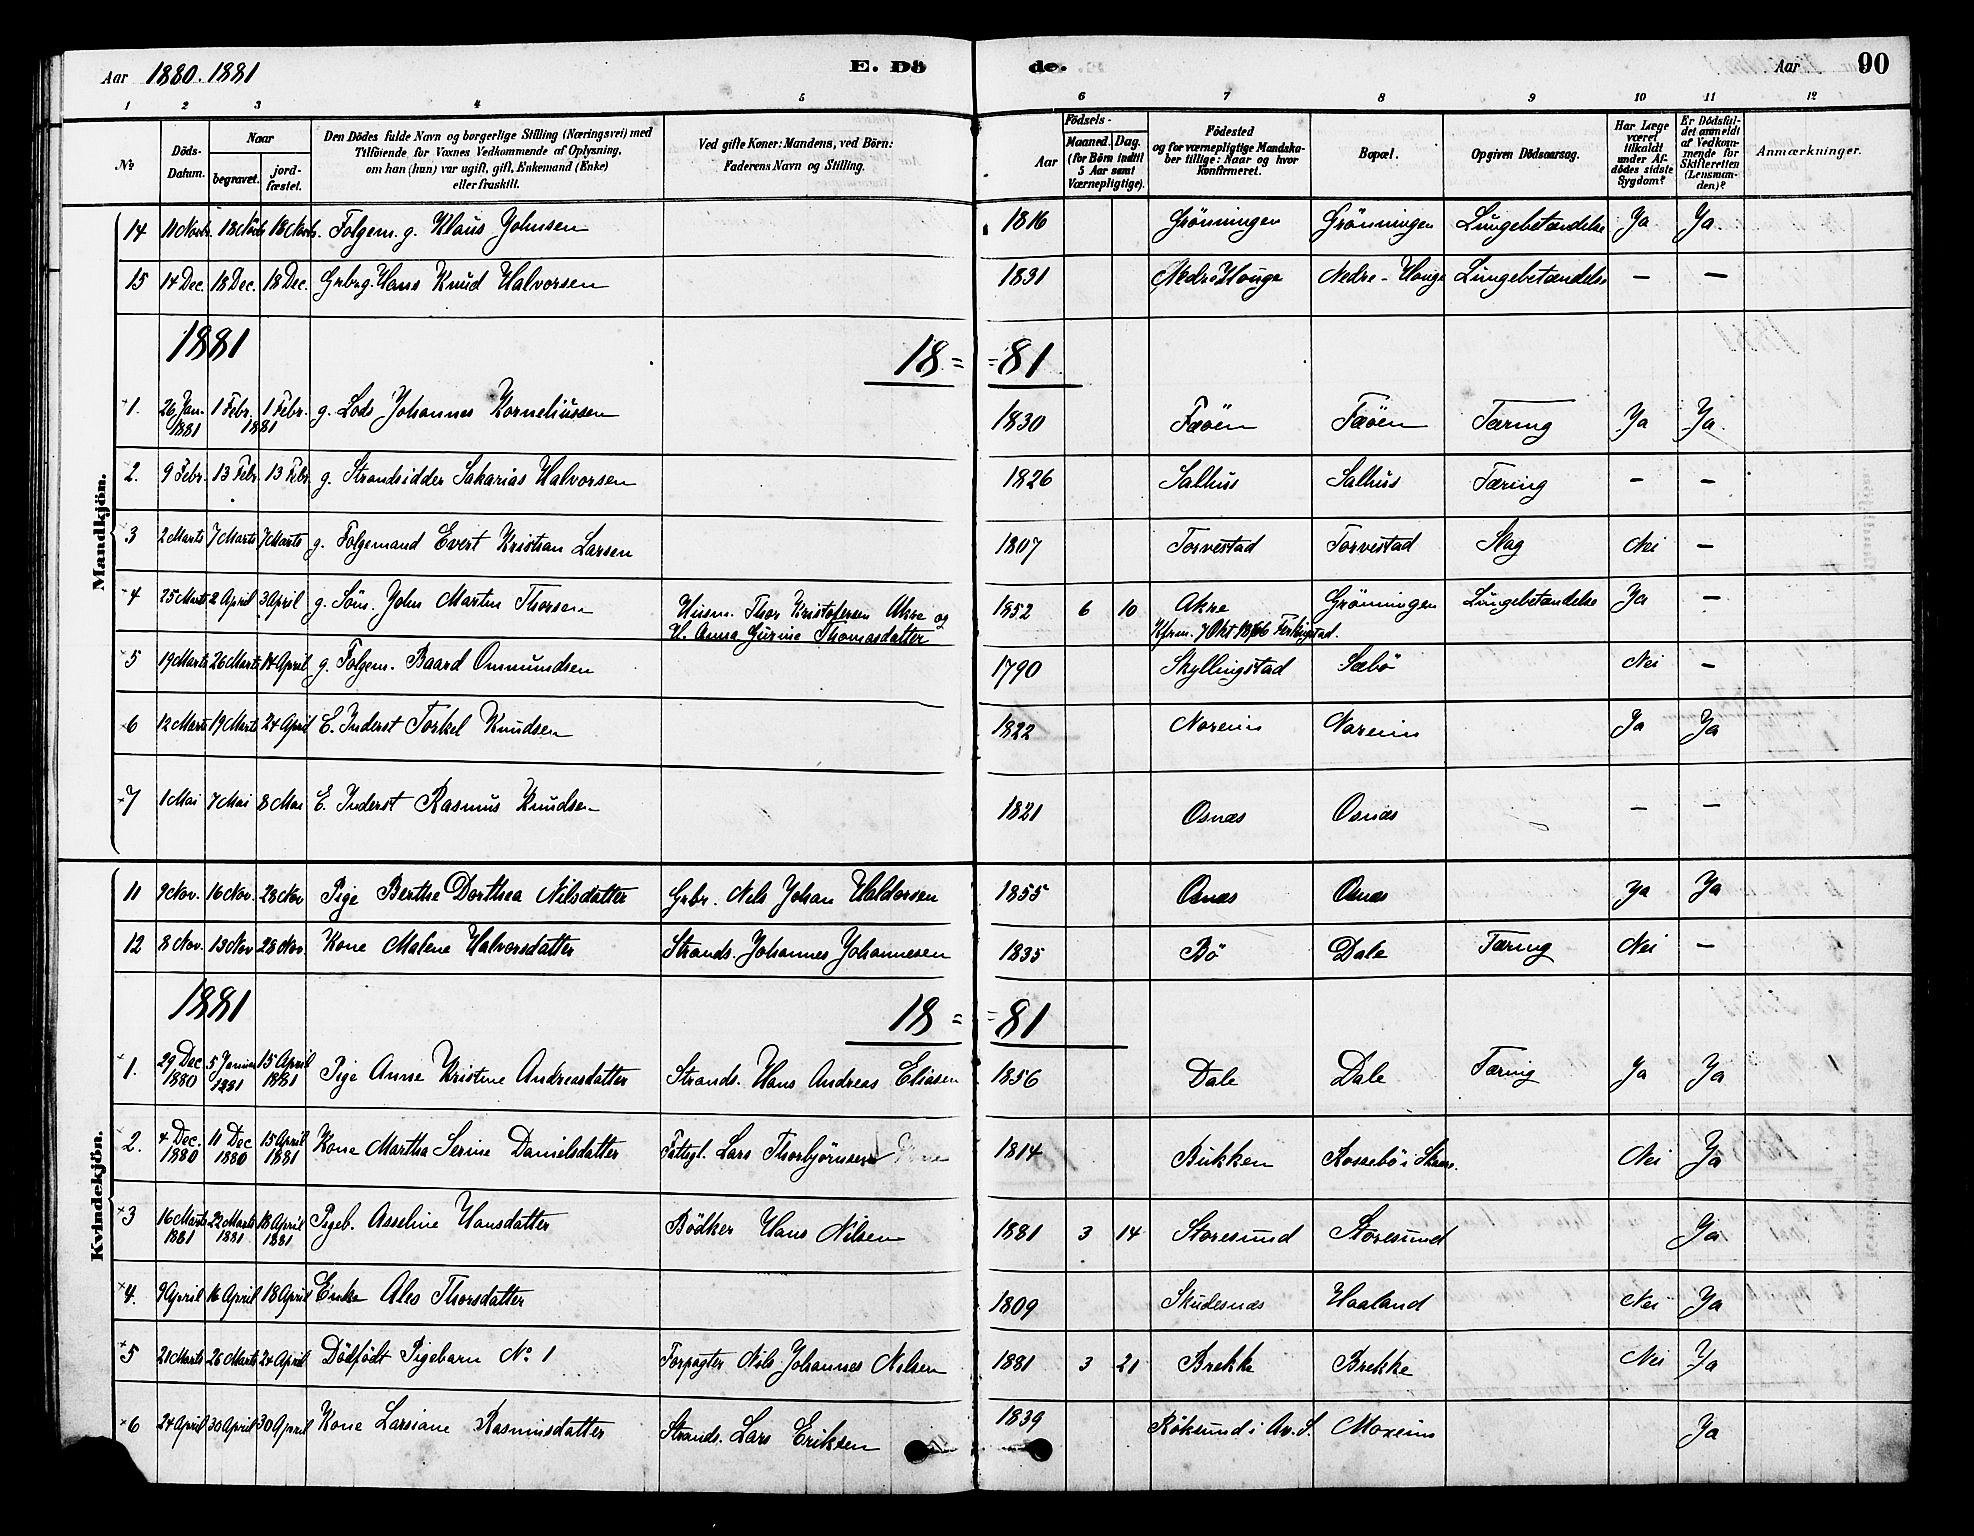 Aar 1880. 1881 E. Dö de. Aar 90
1 2 3 4 5 6 7 8 9 10 11 12
No. Döds-Datum. Naar begravet. jord-fæstet. Den Dödes fulde Navn og borgerlige Stilling (Næringsvei) med Tilföiende for Voxnes Vedkommende af Oplysning, om han (hun) var ugift, gift, Enkemand (Enke) eller fraskilt. Ved gifte Koner: Mandens, ved Börn: Faderens Navn og Stilling. Aar Födsels- Maaned. Dag. (for Börn indtil 5 Aar samt Værnepligtige). Födested og for værnepligtige Mandskaber tillige: Naar og hvor konfirmeret. Bopæl. Opgiven Dödsaarsag. Har Læge været tilkaldt under Afdödes sidste Sygdom? Er Dödsfaldet anmeldt af Vedkommende for Skifteretten (Lensmanden)? Anmærkninger.
Mandkjön.
14 Folgem. g. Klaus Johnsen 1816 Grönningen Grönningen Lungebetændelse Ja Ja.
15 14 Dec. 18 Dec. 18 Dec. Grbrg. Hans Knud Halvorsen 1831 Nedre Houge Nedre-Houge Lungebetændelse — —
1881 18= =81
1. 26 Jan. 1881 1 Febr. 1 Febr. 1881 g. Lods Johannes Korneliussen 1830 Fæöen Fæöen Tæring Ja Ja.
2. 9 Febr. 13 Febr. 13 Febr. g. Strandsidder Sakarias Halvorsen 1826 Salhus Salhus Tæring — —
3 2 Marts 7 Marts 7 Marts g. Folgemand Evert Kristian Larsen 1807 Torvestad Torvestad Slag Nei —
4 25 Marts 2 April 3 April g. Sön. John Martin Thorsen Husm. Thor Kristofersen Akre og 1852 6 10 Akre Grönningen Lungebetændelse Ja —
H. Anna Gurine Thomasdatter Kfrm. 7 Okt 1866 Ferkingstad.
5 19 Marts 26 Marts 14 April g. Folgem. Baard Ommundsen 1790 Skyllingstad Sæbö Nei —
6 12 Marts 19 Marts 24 April E. Inderst Torkel Knudsen 1822 Noreim Noreim Ja Ja
7 1 Mai 7 Mai 8 Mai E. Inderst Rasmus Knudsen 1821 Osnæs Osnæs — —
Kvindekjön.
11 9 Nov. 16 Nov. 28 Nov Pige Berthe Dorthea Nilsdatter Grbr. Nils Johan Haldorsen 1855 Osnæs Osnæs Ja Ja
12 8 Nov. 13 Nov 28 Nov. Kone Malene Halvorsdatter Strands. Johannes Johannesen 1835 Bö Dale Tæring Nei —
1881 18= =81
1. 29 Dec 1880 5 Januar 1881 15 April 1881 Pige Anne Kristine Andreasdatter Strands. Hans Andreas Eliasen 1856 Dale Dale Tæring Ja Ja
2. 4 Dec. 1880 11 Dec 1880 15 April 1881 Kone Martha Serine Danielsdatter Fattigl. Lars Thorbjörnsen 1814 Bukken Rossebö i Skaare. Nei Ja
3 16 Marts 1881 22 Marts 1881 18 April 1881 Pigeb. Asseline Hansdatter Bödker Hans Nilsen 1881 3 14 Storesund Storesund Ja
4. 9 April 16 April 18 April Enke Ales Thorsdatter 1809 Skudesnæs Haaland Nei Ja
5 21 Marts 26 Marts 24 April Dödfödt Pigebarn No 1 Forpagter Nils Johannes Nilsen 1881 3 21 Brekke Brekke Nei Ja
6 24 April 30 April 30 April Kone Larsiane Rasmusdatter Strands. Lars Eriksen 1839 Röksund i Av. S. Ja